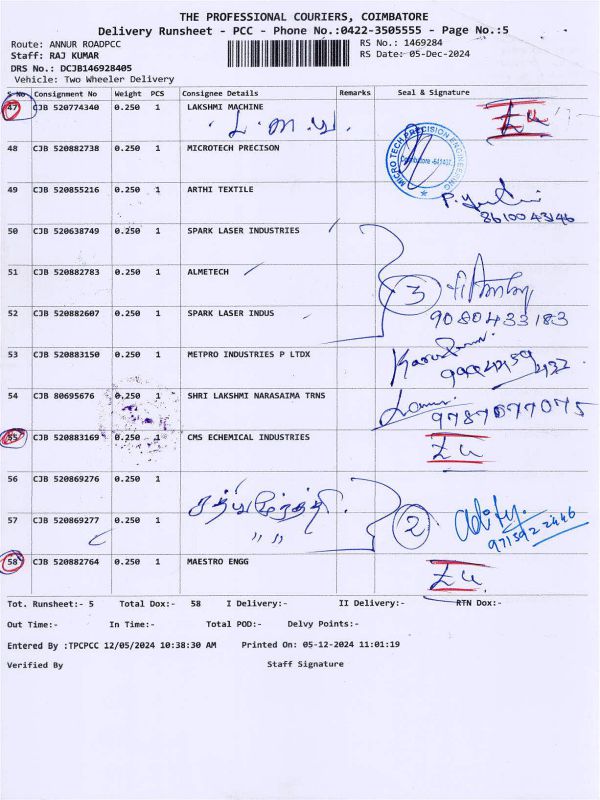 THE PROFESSIONAL COURIERS, COIMBATORE
Delivery Runsheet - PCC - Phone No.:0422-3505555 - Page No.:5
Route: ANNUR ROADPCC RS No.: 1469284
Staff: RAJ KUMAR RS Date: 05-Dec-2024
DRS No.: DCJB146928405
Vehicle: Two Wheeler Delivery
S No Consignment No Weight PCS Consignee Details Remarks Seal & Signature
47 CJB 520774340 0.250 1 LAKSHMI MACHINE
48 CJB 520882738 0.250 1 MICROTECH PRECISON
MICRO TECH PRECISION ENGINEERING
49 CJB 520855216 0.250 1 ARTHI TEXTILE
8610043146
50 CJB 520638749 0.250 1 SPARK LASER INDUSTRIES
51 CJB 520882783 0.250 1 ALMETECH
3
52 CJB 520882607 0.250 1 SPARK LASER INDUS
9080433183
53 CJB 520883150 0.250 1 METPRO INDUSTRIES P LTDX
54 CJB 80695676 0.250 1 SHRI LAKSHMI NARASAIMA TRNS
9787077075
55 CJB 520883169 0.250 1 CMS ECHEMICAL INDUSTRIES
56 CJB 520869276 0.250 1
57 CJB 520869277 0.250 1
" "
2
58 CJB 520882764 0.250 1 MAESTRO ENGG
Tot. Runsheet:- 5 Total Dox:- 58 I Delivery:- II Delivery:- RTN Dox:-
Out Time:- In Time:- Total POD:- Delvy Points:-
Entered By :TPCPCC 12/05/2024 10:38:30 AM Printed On: 05-12-2024 11:01:19
Verified By Staff Signature